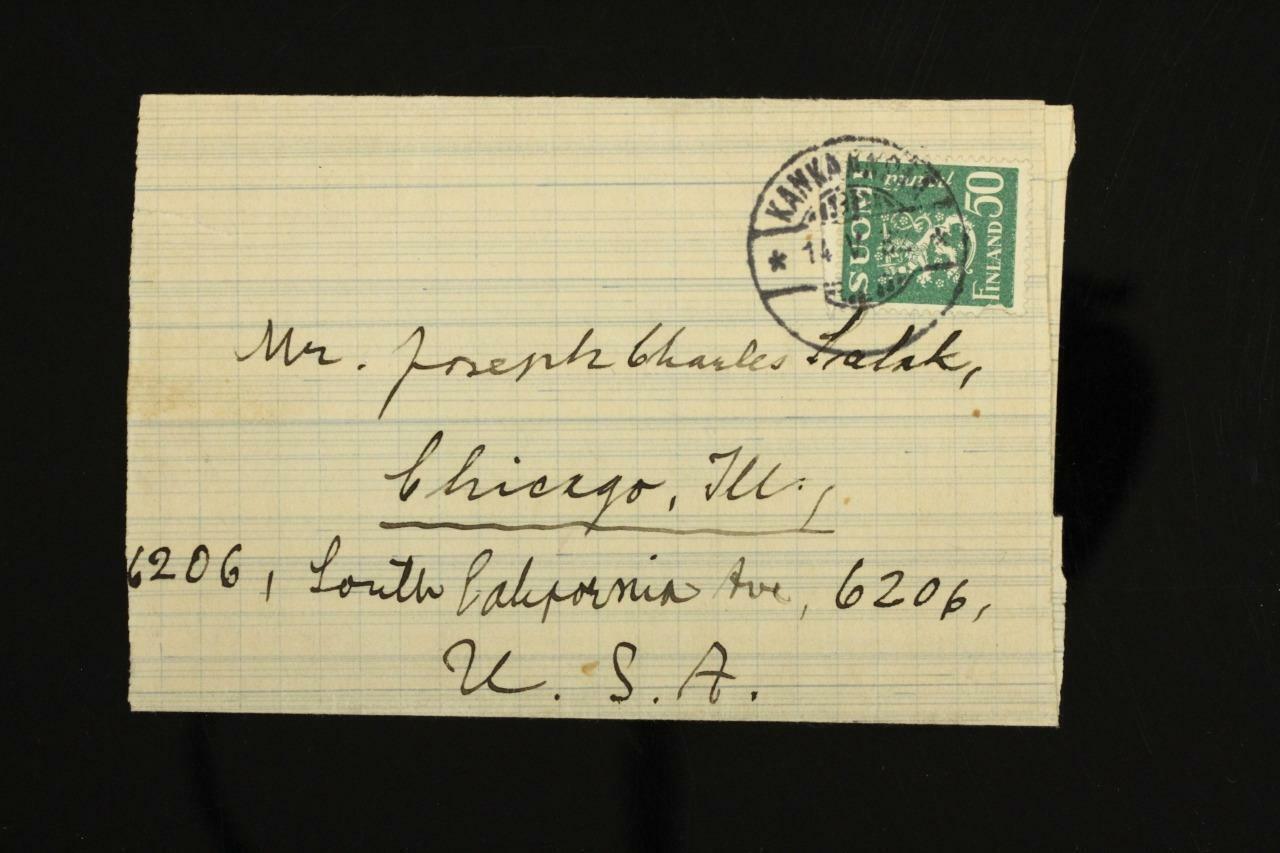 KANKAANPÄÄ
14. V.
SUO
50
FINLAND
Mr. Joseph Charles Salak,
Chicago, Ill.,
6206, South California Ave, 6206,
U. S. A.